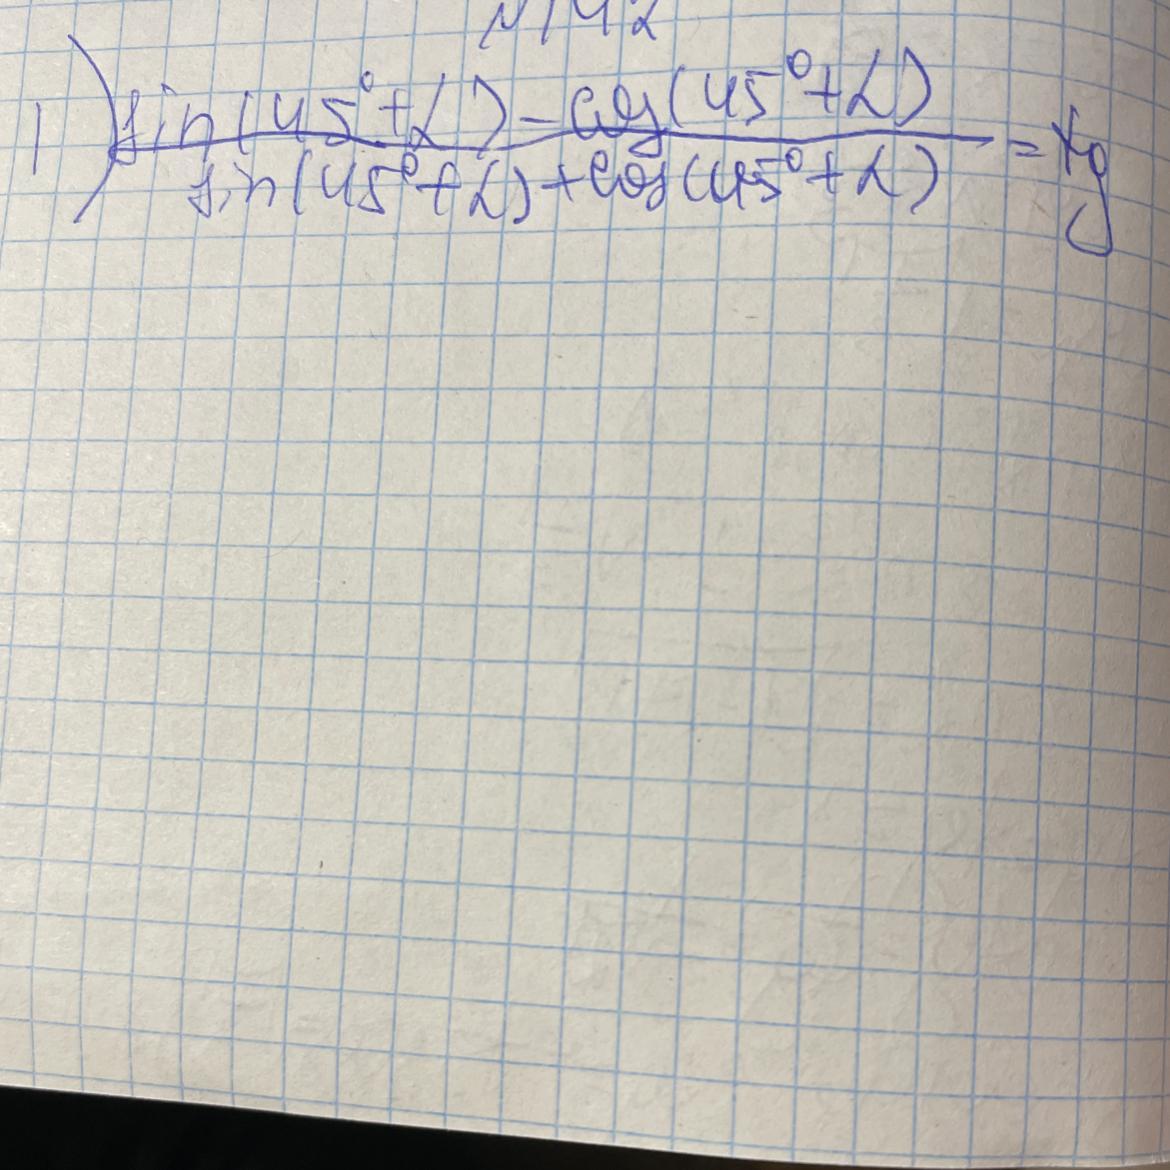 1) sin(45°+α) - cos(45°+α)
sin(45°+α) + cos(45°+α) = tg